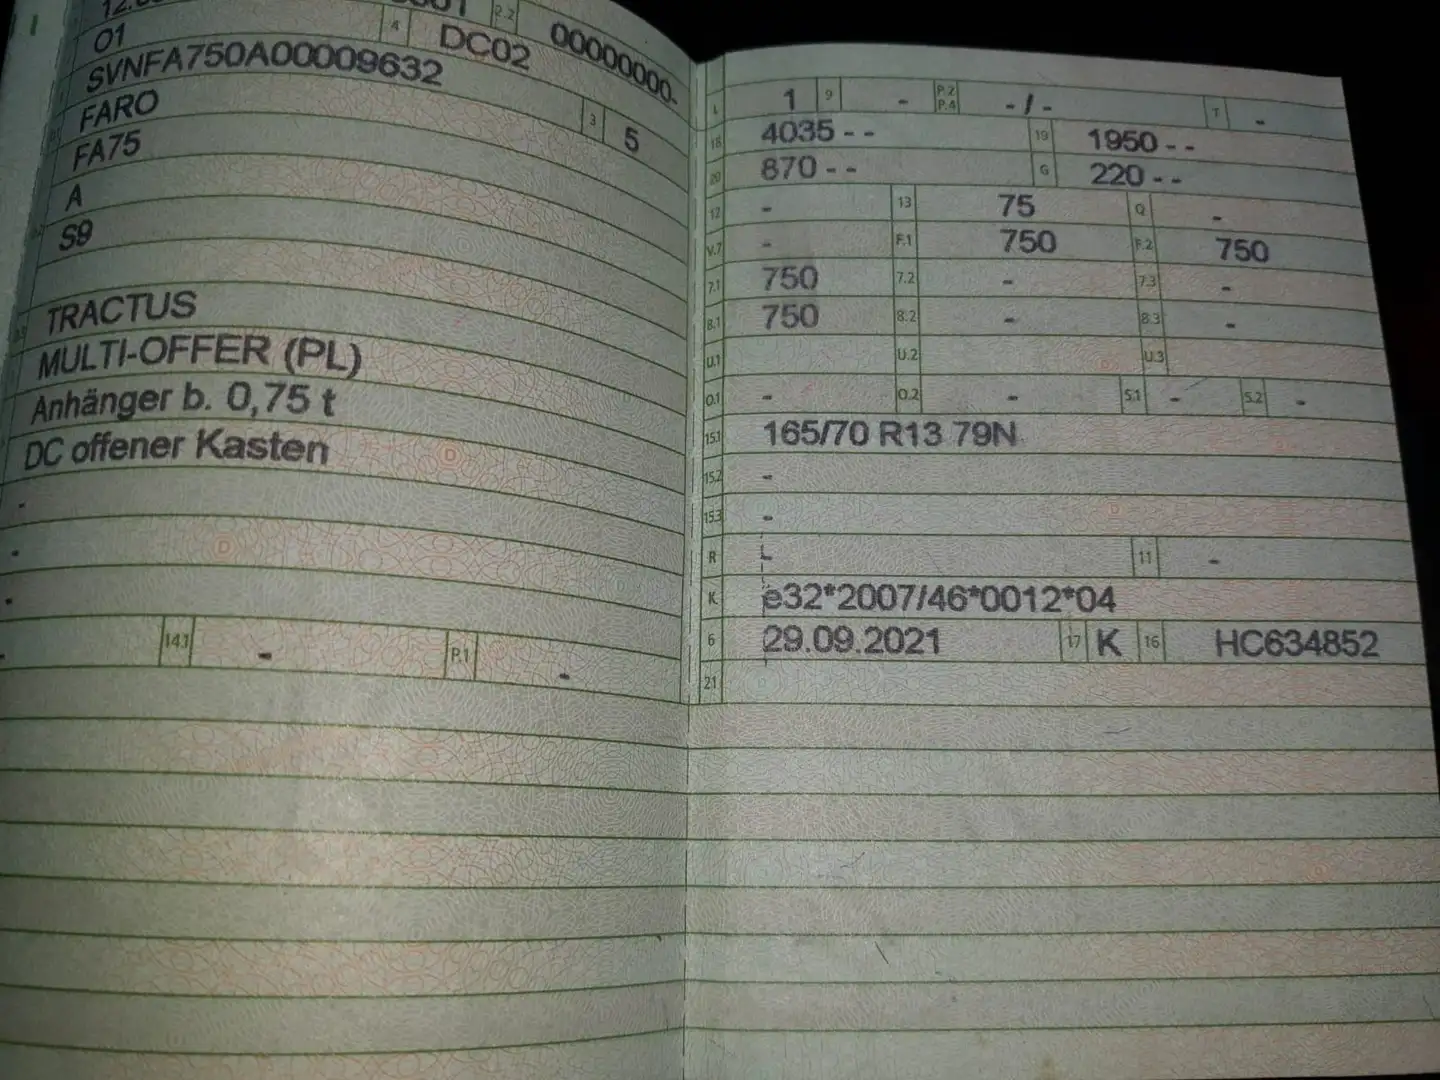 2.2 00000000-
01 4 DC02
SVNFA750A00009632
FARO 3 5
FA75
A
S9
TRACTUS
MULTI-OFFER (PL)
Anhänger b. 0,75 t
DC offener Kasten
-
-
-
- 14.1 - P.1 -
L 1 9 - P.2 P.4 -/- T -
18 4035-- 19 1950--
20 870-- G 220--
12 - 13 75 Q -
V.7 - F.1 750 F.2 750
7.1 750 7.2 - 7.3 -
8.1 750 8.2 - 8.3 -
U.1 U.2 U.3
O.1 - O.2 - S.1 - S.2 -
15.1 165/70 R13 79N
15.2 -
15.3 -
R 11 -
K e32*2007/46*0012*04
6 29.09.2021 17 K 16 HC634852
21